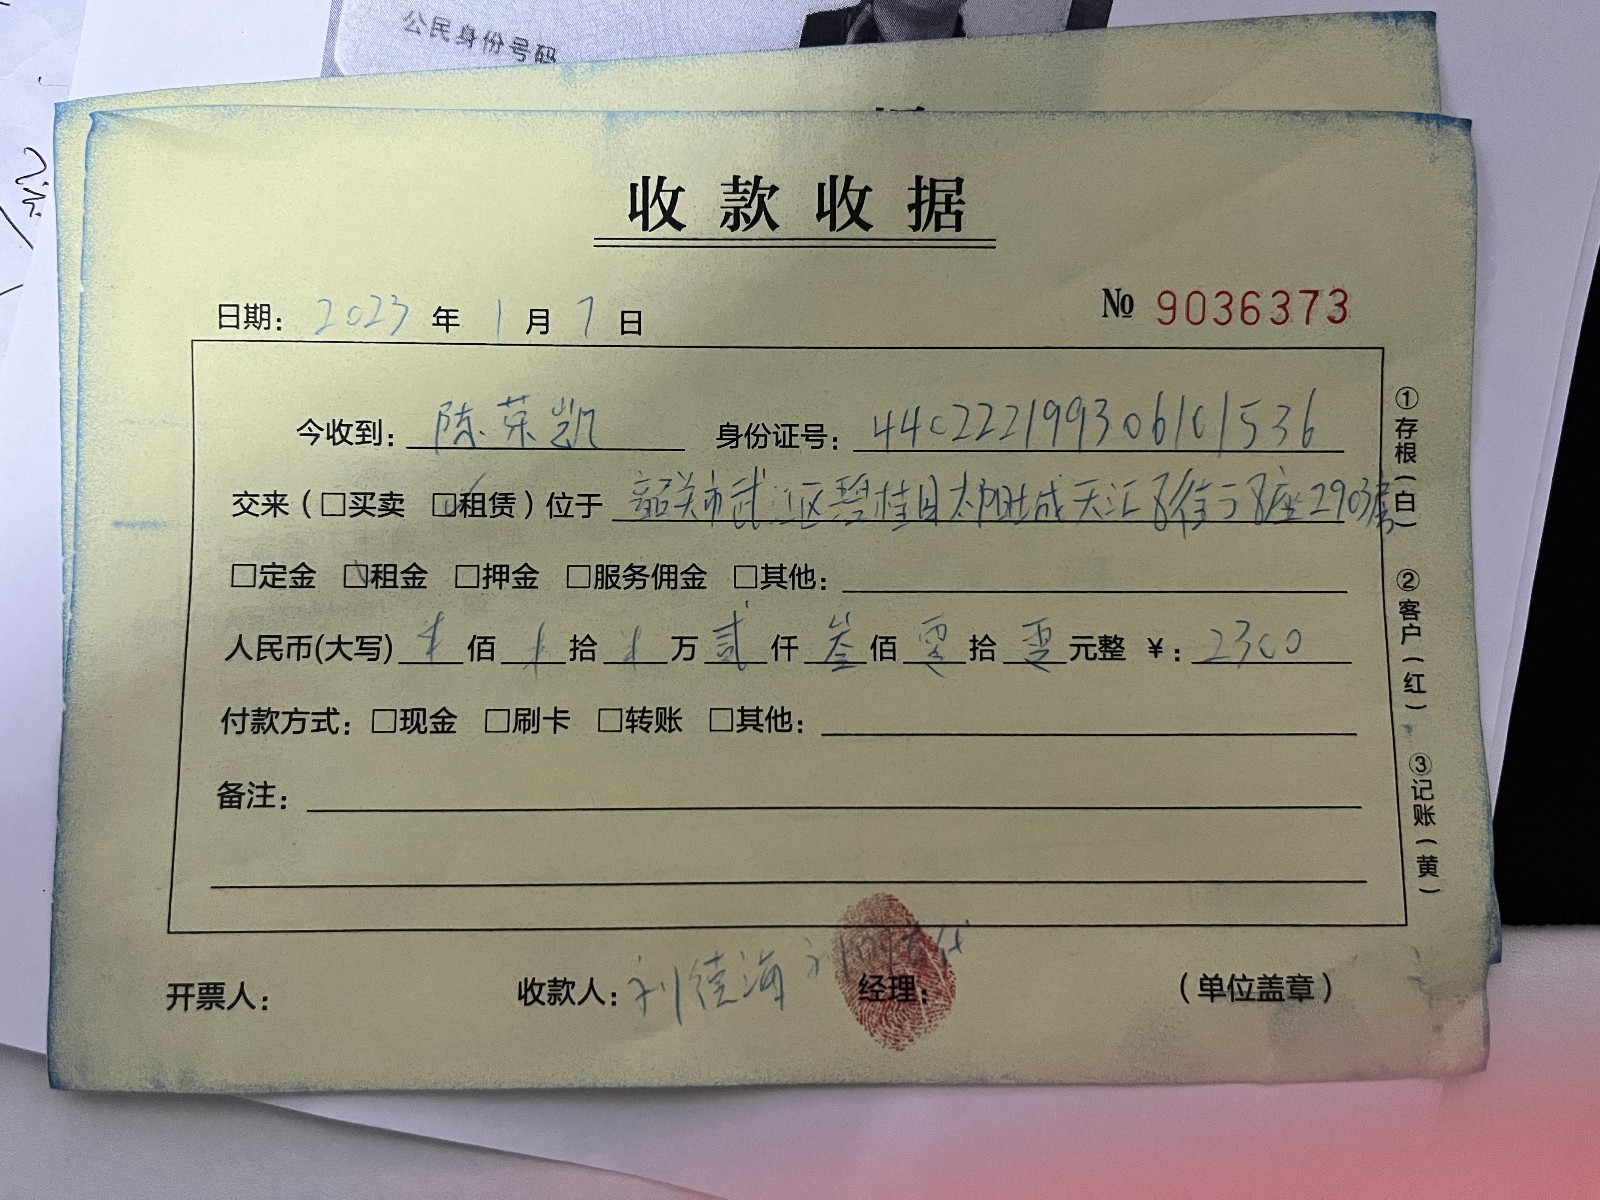 公民身份号码
收款收据
日期：2023年1月7日
№ 9036373
今收到：陈荣凯 身份证号：440222199306101536
交来（□买卖 ☑租赁）位于 韶关市武江区碧桂园太阳城天汇8街 8座2903房
□定金 ☑租金 □押金 □服务佣金 □其他：
人民币(大写) 佰 拾 万 贰 仟 叁 佰 零 拾 零 元整 ¥：2300
付款方式：□现金 □刷卡 □转账 □其他：
备注：
开票人： 收款人：刘德海 经理： （单位盖章）
①存根（白） ②客户（红） ③记账（黄）